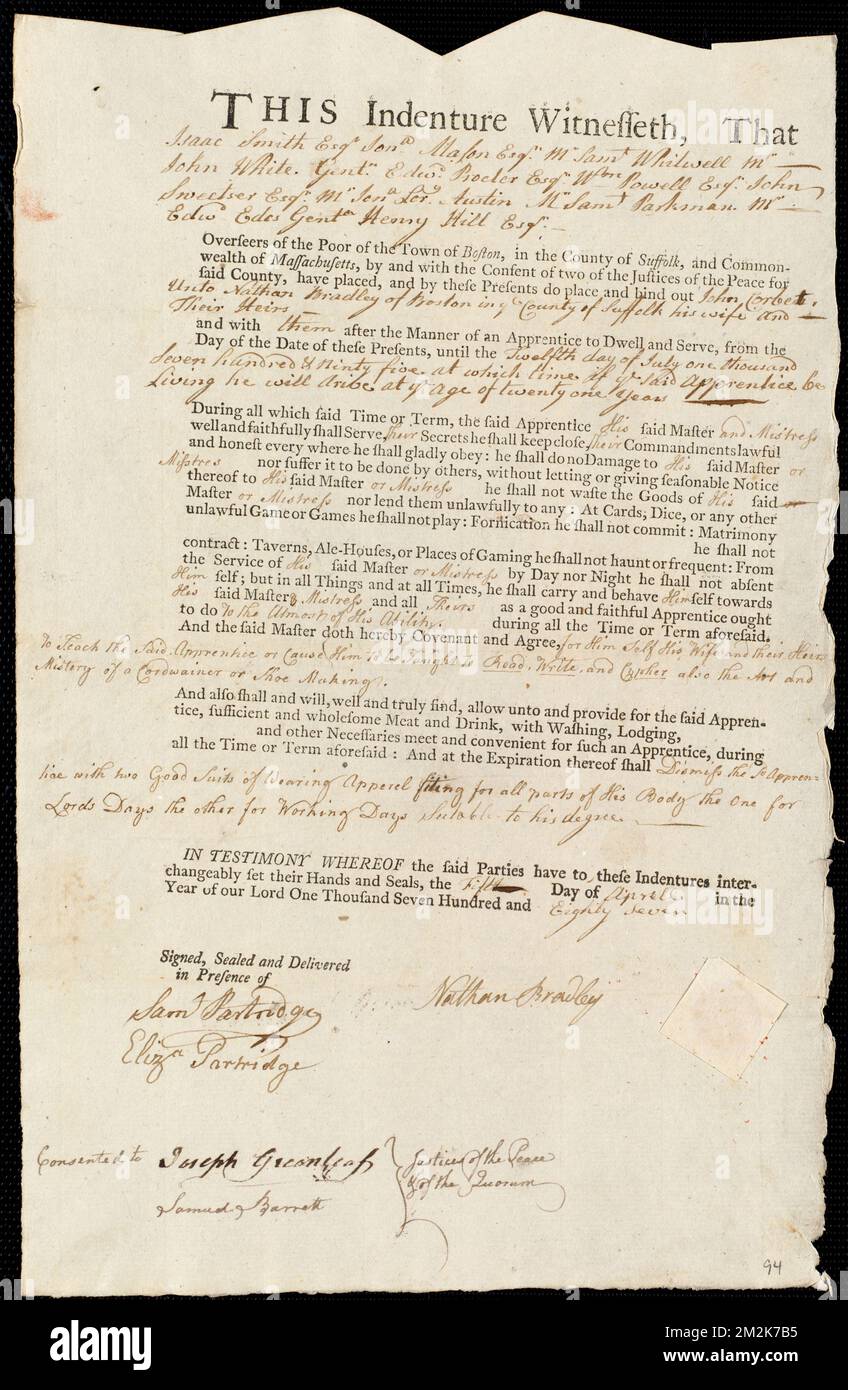 THIS Indenture Witneſſeth, That
Isaac Smith Esqr Jona Mason Esqr Mr Saml Whitwell Mr
John White. Gentn Edwd Procter Esqr Wm Powell Esqr John
Sweetser Esqr Mr Jona Lor. Austin Mr Saml Parkman. Mr
Edwd Edes Gentn Henry Hill Esqr
Overſeers of the Poor of the Town of Boſton, in the County of Suffolk, and Common-
wealth of Maſſachuſetts, by and with the Conſent of two of the Juſtices of the Peace for
ſaid County, have placed, and by theſe Preſents do place and bind out John Corbett.
Unto Nathan Bradley of Boston in ye County of Suffolk his wife and
Their Heirs
and with them after the Manner of an Apprentice to Dwell and Serve, from the
Day of the Date of theſe Preſents, until the Twelfth day of July one thousand
Seven hundred & ninty five at which time if ye said Apprentice be
Living he will arive at ye Age of twenty one Years
During all which ſaid Time or Term, the ſaid Apprentice His ſaid Maſter and Mistress
well and faithfully ſhall Serve, their Secrets he ſhall keep cloſe, their Commandments lawful
and honeſt every where he ſhall gladly obey: he ſhall do no Damage to His ſaid Maſter or
Misstres nor ſuffer it to be done by others, without letting or giving ſeaſonable Notice
thereof to His ſaid Maſter or Mistress he ſhall not waſte the Goods of His ſaid
Maſter or Mistress nor lend them unlawfully to any: At Cards, Dice, or any other
unlawful Game or Games he ſhall not play: Fornication he ſhall not commit: Matrimony
he ſhall not
contract: Taverns, Ale-Houſes, or Places of Gaming he ſhall not haunt or frequent: From
the Service of His ſaid Maſter or Mistress by Day nor Night he ſhall not abſent
Him ſelf; but in all Things and at all Times, he ſhall carry and behave Himſelf towards
His ſaid Maſter & Mistress and all Theirs as a good and faithful Apprentice ought
to do to the Utmost of His Ability. during all the Time or Term aforeſaid.
And the ſaid Maſter doth hereby Covenant and Agree, for Him Self His Wife and their Heirs
To Teach the Said Apprentice or Cause Him to be Taught to Read, Write, and Cypher also the Art and
Mistery of a Cordwainer or Shoe Making.
And alſo ſhall and will, well and truly find, allow unto and provide for the ſaid Appren-
tice, ſufficient and wholeſome Meat and Drink, with Waſhing, Lodging,
and other Neceſſaries meet and convenient for ſuch an Apprentice, during
all the Time or Term aforeſaid: And at the Expiration thereof ſhall Dismess the Sd Appren=
tice with two Good Suits of Wearing Apperel fitting for all parts of His Body the One for
Lords Days the other for Working Days Sutable to his degree.
IN TESTIMONY WHEREOF the ſaid Parties have to theſe Indentures inter-
changeably ſet their Hands and Seals, the Fifth Day of April in the
Year of our Lord One Thouſand Seven Hundred and Eighty Seven
Signed, Sealed and Delivered
in Preſence of
Saml Partridge
Nathan Bradley
Eliza Partridge
Consented to Joseph Greenleaf
Samuel Barrett
Justices of the Peace
& of the Quorum
94
alamy
Image ID: 2M2K7B5
www.alamy.com